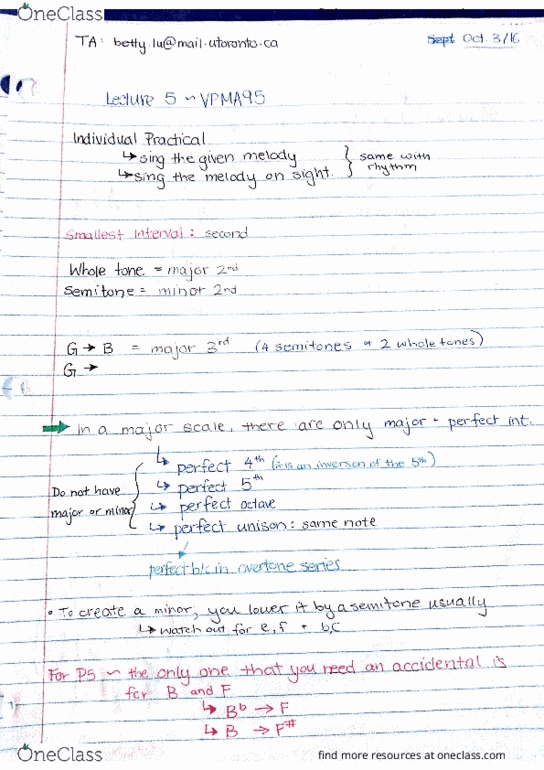 OneClass
TA: betty.lu@mail.utoronto.ca
Sept Oct. 3/16
Lecture 5 ~ VPMA95
Individual Practical
↳ sing the given melody
↳ sing the melody on sight.
} same with
rhythm
Smallest interval: second
Whole tone = major 2nd
Semitone = minor 2nd
G → B = major 3rd (4 semitones or 2 whole tones)
G →
→ In a major scale, there are only major + perfect int.
↳ perfect 4th (it is an inversion of the 5th)
↳ perfect 5th
↳ perfect octave
↳ perfect unison: same note
Do not have
major or minor
perfect b/c in overtone series
• To create a minor, you lower it by a semitone usually
↳ watch out for e,f + b,c
For P5 ~ the only one that you need an accidental is
for B and F
↳ Bb → F
↳ B → F#
OneClass
find more resources at oneclass.com